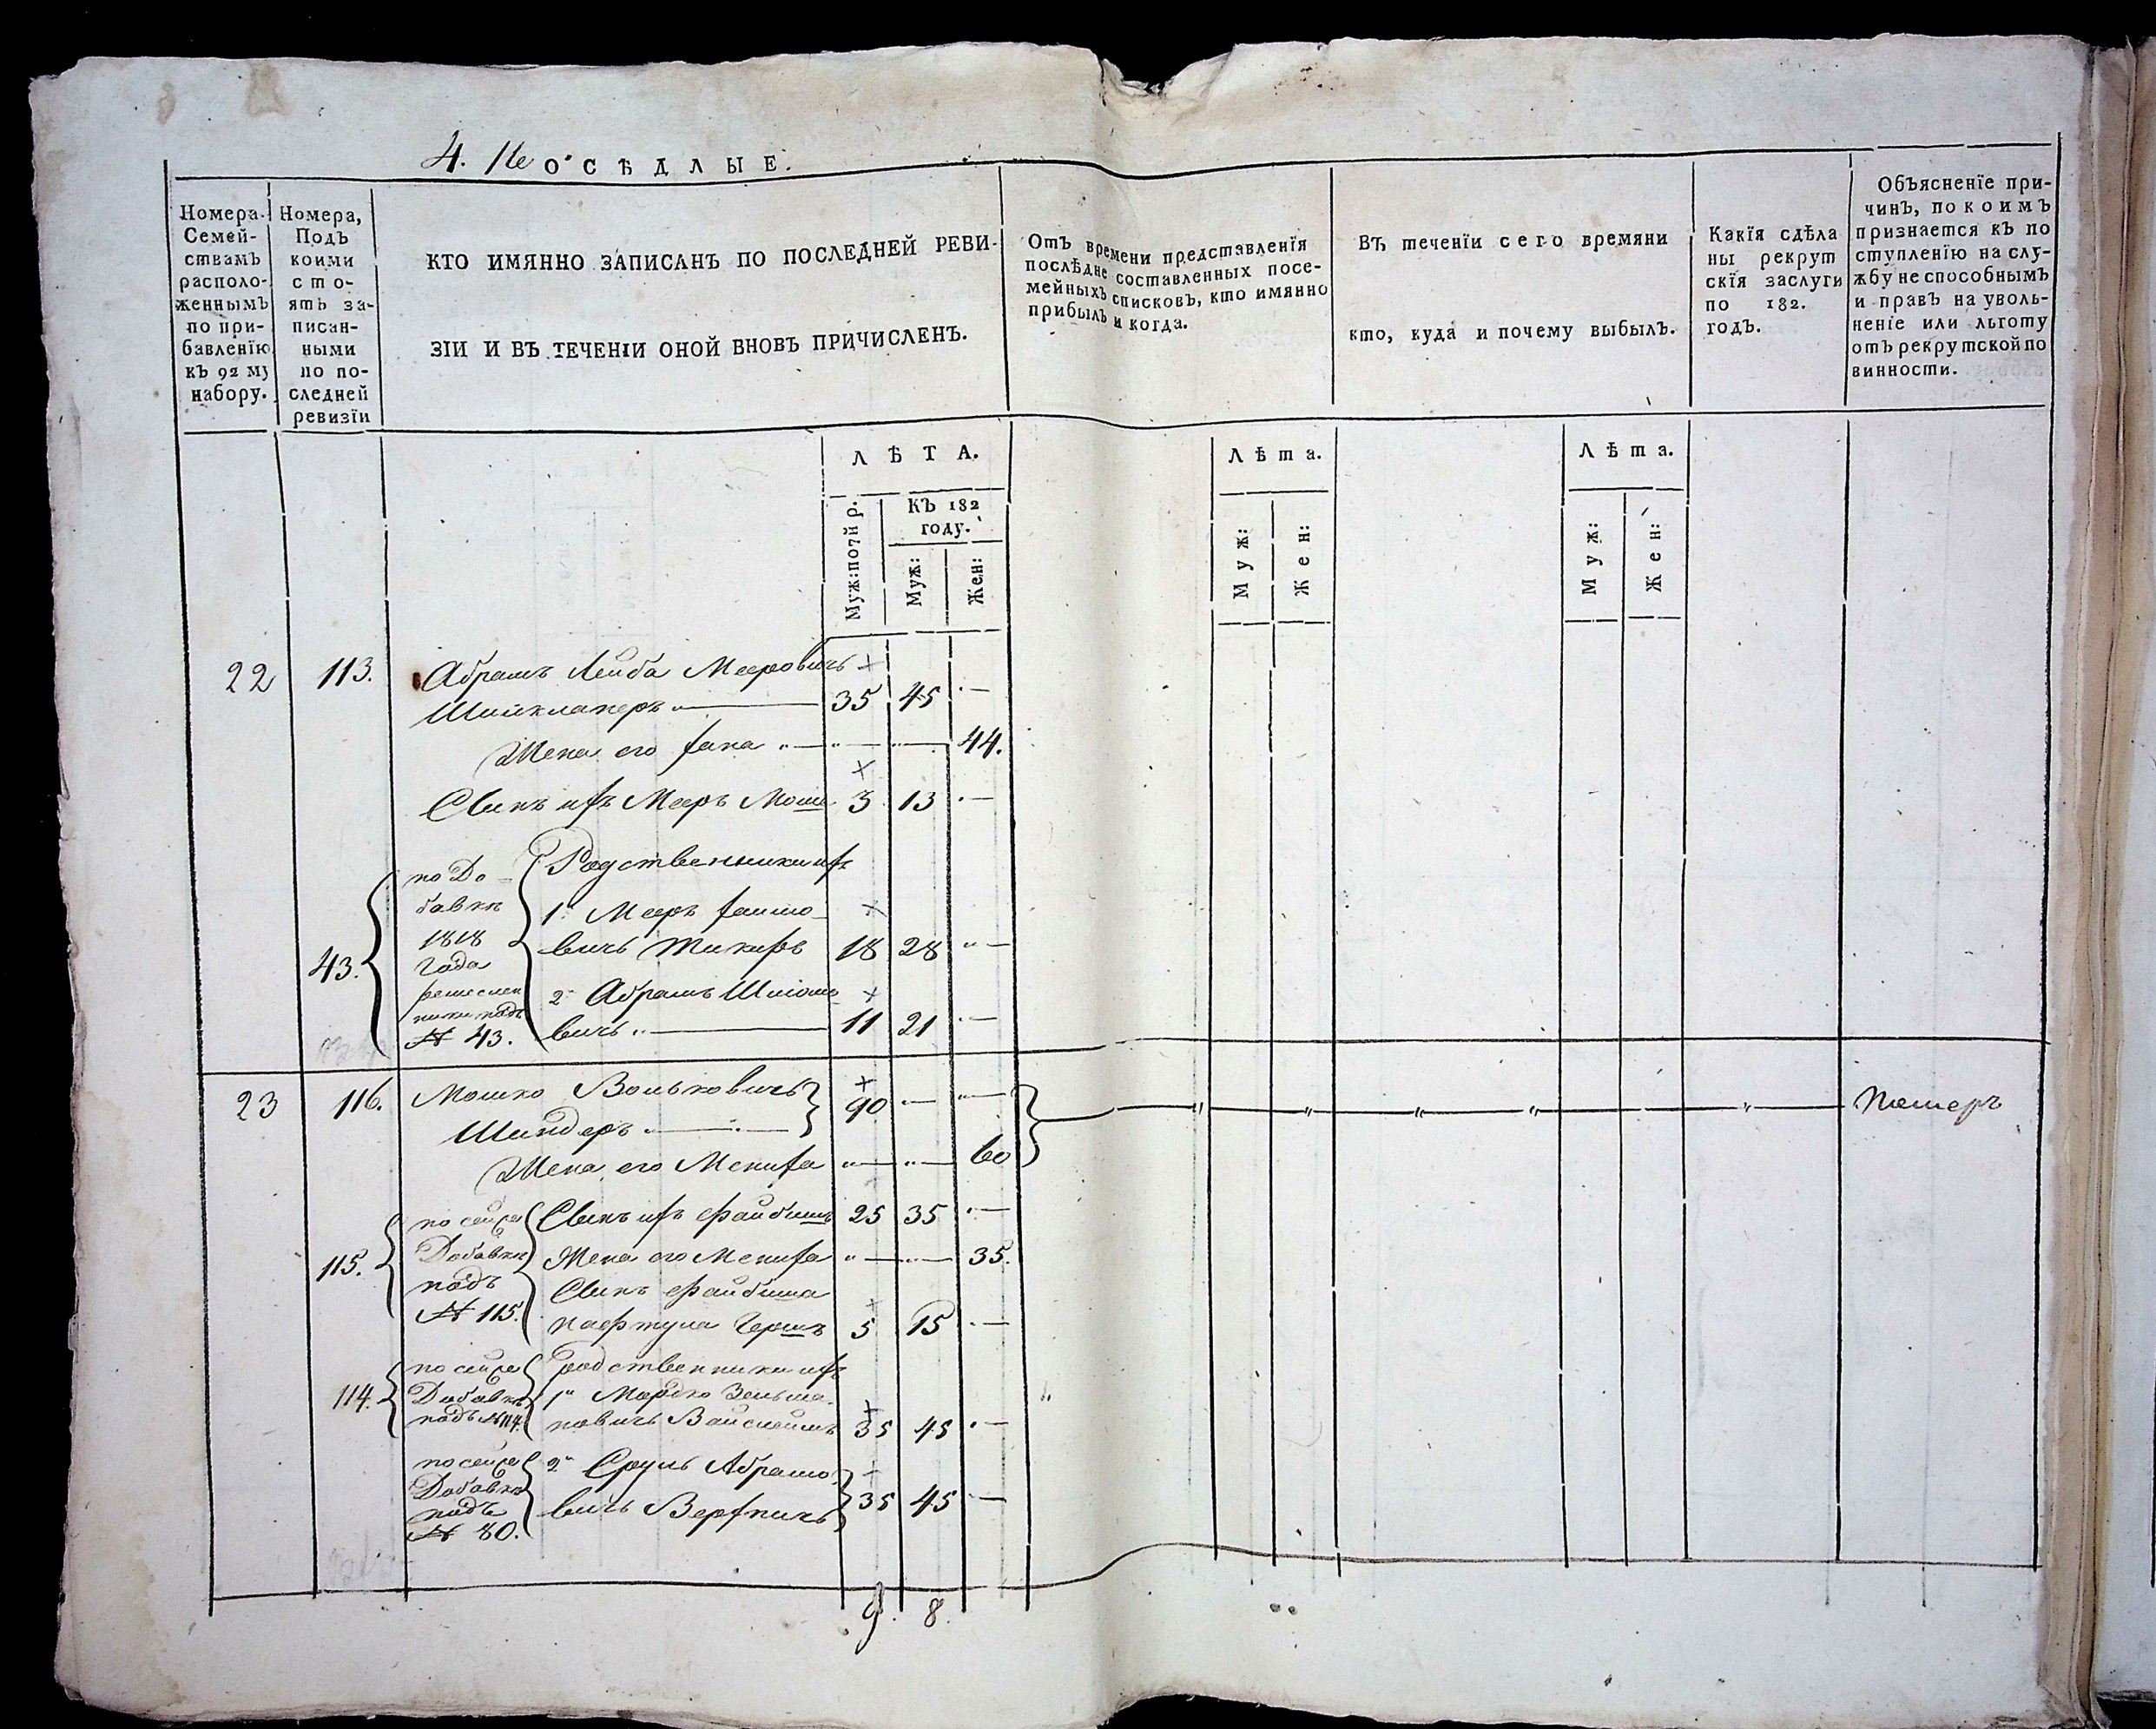 4. Не ОСѢДЛЫЕ.
Номера
Семей-
ствамъ
располо-
женнымъ
по при-
бавленію
къ 92 му
набору.
Номера,
Подъ
коими
сто-
ятъ за-
писан-
ными
по по-
следней
ревизїи
КТО ИМЯННО ЗАПИСАНЪ ПО ПОСЛЕДНЕЙ РЕВИ-
ЗІИ И ВЪ ТЕЧЕНІИ ОНОЙ ВНОВЬ ПРИЧИСЛЕНЪ.
Отъ времени представленїя
послѣдне составленныхъ посе-
мейныхъ списковъ, кто имянно
прибылъ и когда.
Въ теченїи сего времяни
кто, куда и почему выбылъ.
Какїя сдѣла
ны рекрут
скїя заслуги
по 182.
годъ.
Объясненїе при-
чинъ, по коимъ
признается къ по
ступленїю на слу-
жбу неспособнымъ
и правъ на уволь-
ненїе или льготу
отъ рекрутской по
винности.
ЛѢТА.
Муж: по 7й р.
КЪ 182
году.
Муж:
Жен:
Лѣта.
Муж:
Жен:
Лѣта.
Муж:
Жен:
22 113. Абрамъ Лейба Мееровичь
Шийклаперъ 35 45 —
Жена его 44.
Сынъ ихъ Мееръ Мошк 3 13 —
43.
по До-
бавкѣ
1818
года
подъ
№ 43.
Родственники ихъ
1й Мееръ
вичь 18 28 —
2й Абрамъ Шлiомо-
вичь 11 21 —
23 116. Мошко Вольковичь 90 — —
Шиндеръ Померъ
Жена его Мениха — — 60
115.
по сейже
Добавкѣ
подъ
№ 115.
Сынъ ихъ Файбишъ 25 35 —
Жена его Мениха — — 35.
Сынъ Файбиша
Нафтула Гершъ 5 15 —
114.
по сейже
Добавкѣ
подъ № 114.
Родственники ихъ
1й Мордко Зельма-
новичь 35 45 —
по сейже
Добавкѣ
подъ
№ 80.
2й Сруль Абрамо-
вичь 35 45 —
9. 8.